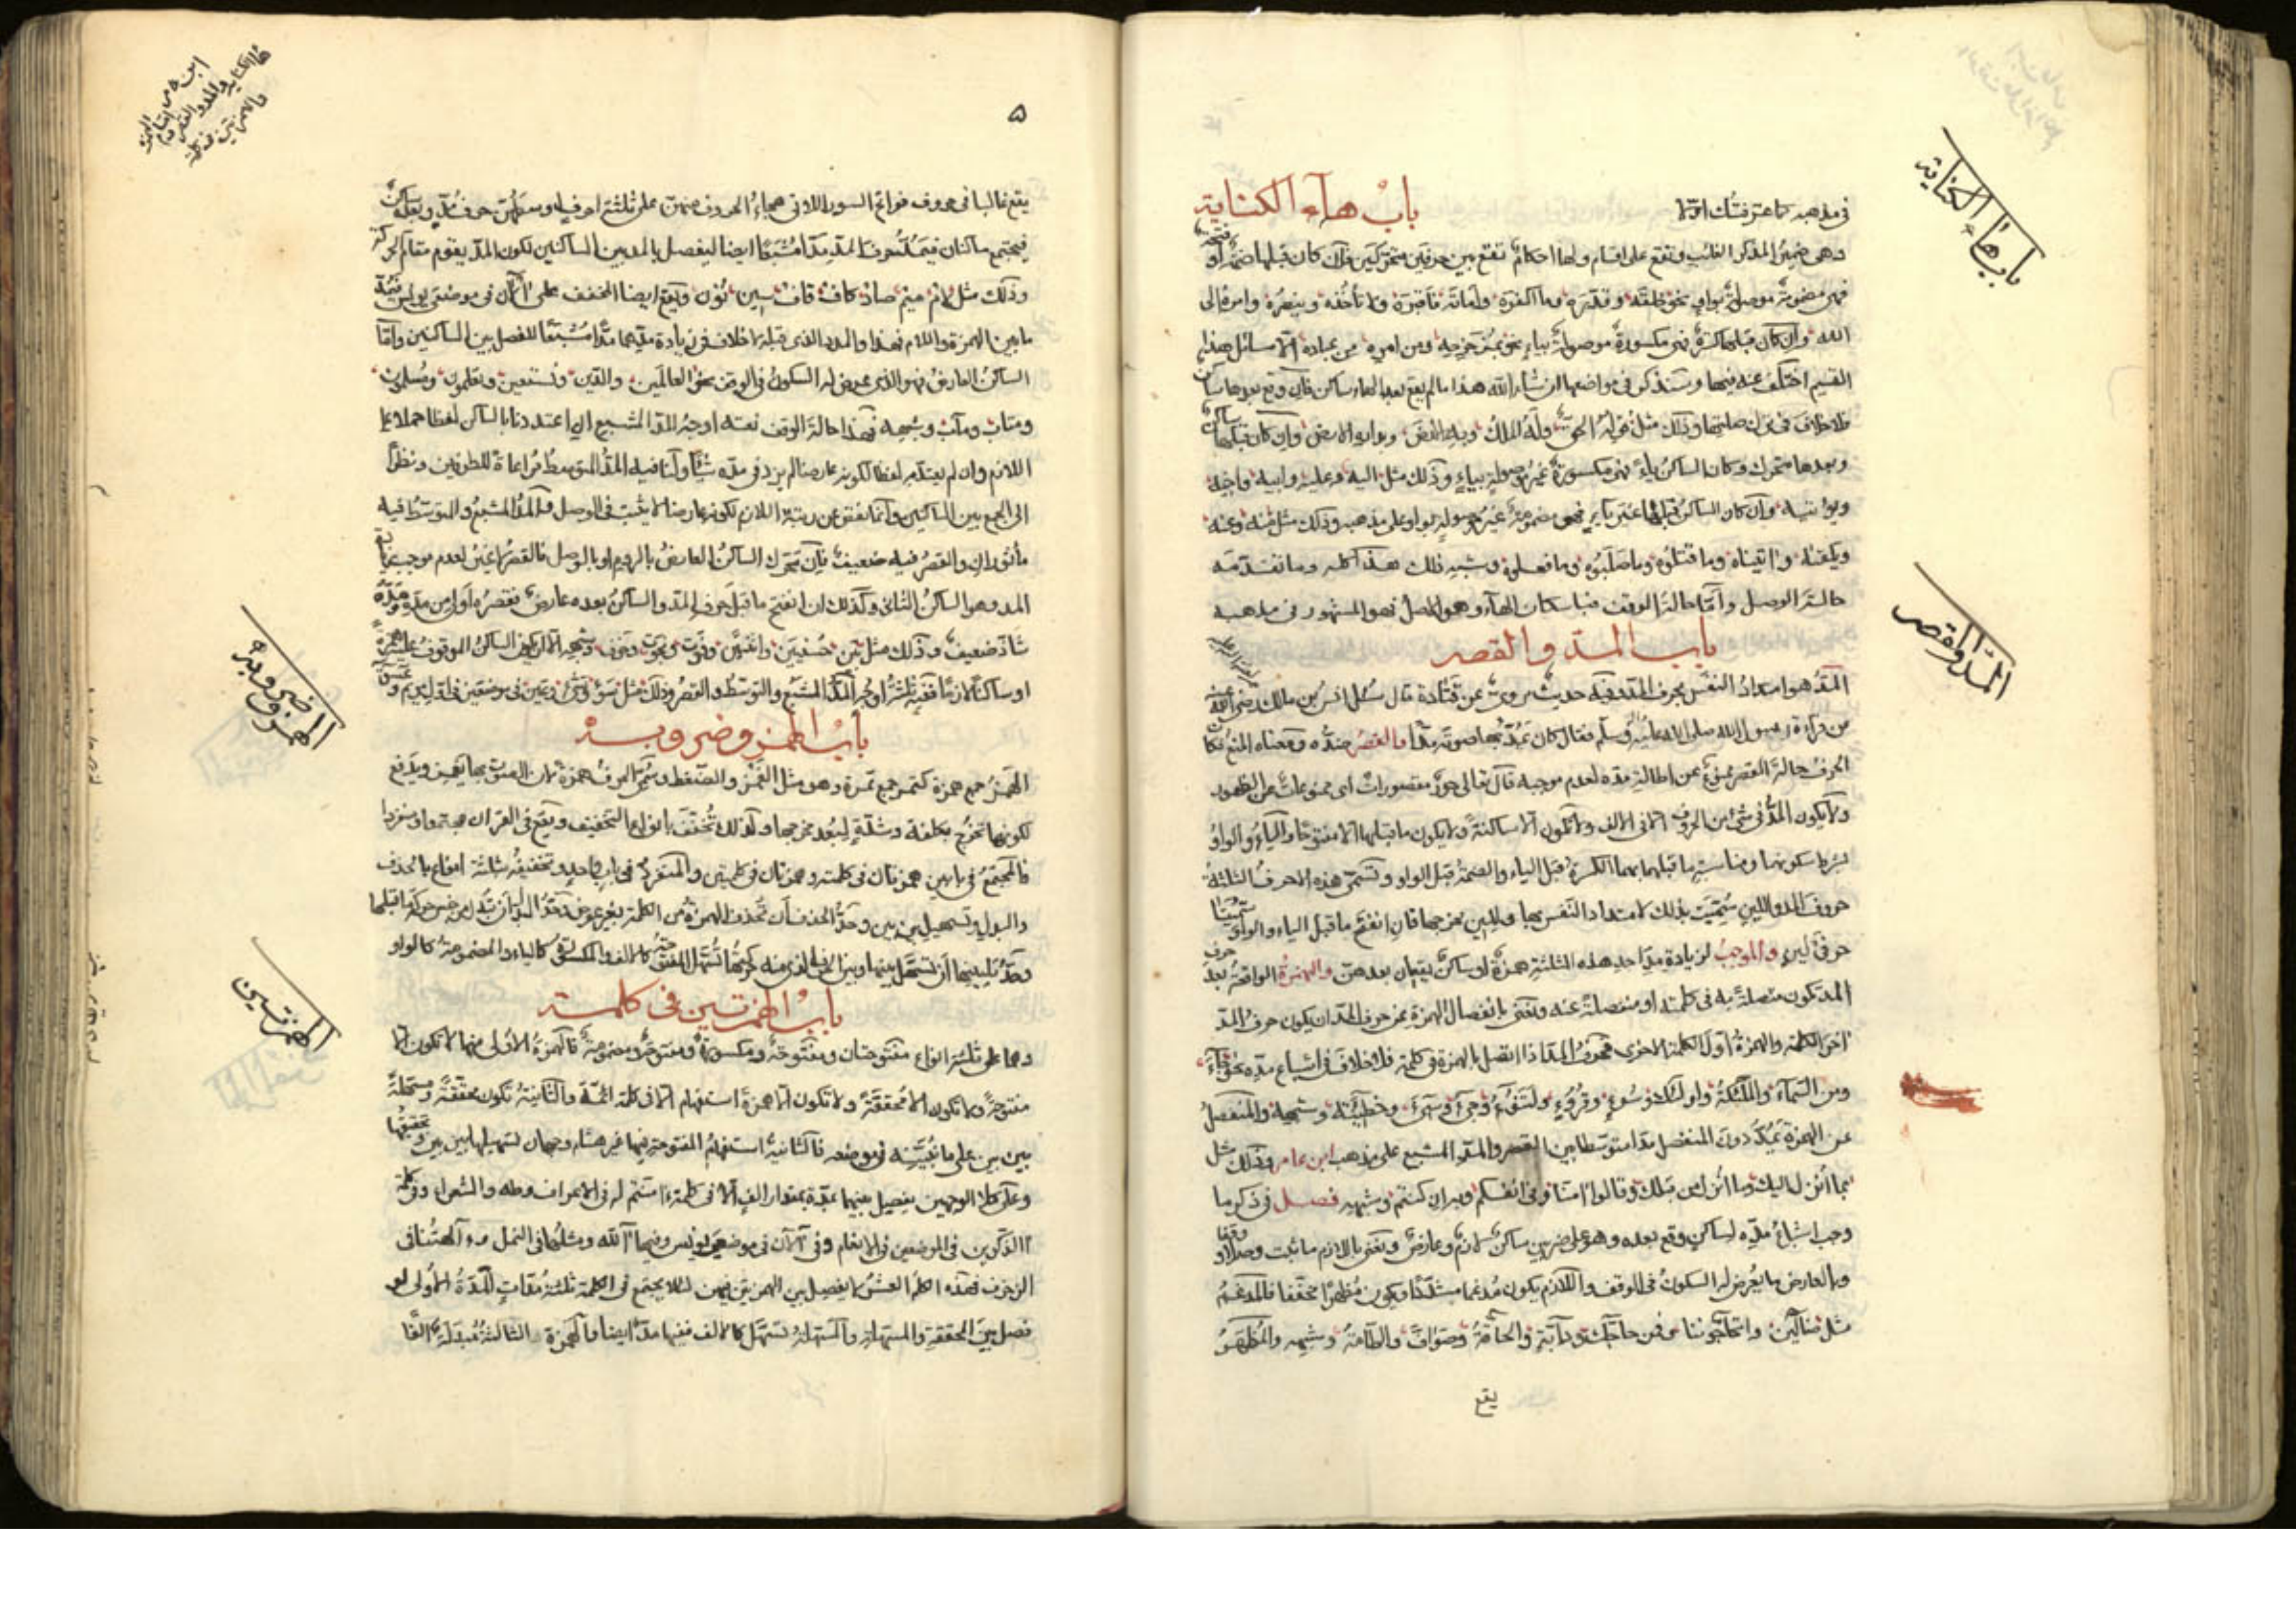 في مذهبه كما عرفتك اولا باب هاء الكناية
وهي ضمير المذكر الغائب وتقع على اقسام ولها احكام تقع بين حرفين متحركين فان كان قبلها ضمة او فتحة
فهي مضمومة موصولة بواو نحو خلقه وقدره وما اكفره واماته فاقبره ولا تأخذه وينصره وامره الى
الله وان كان قبلها كسرة فهي مكسورة موصولة بياء نحو بمزحزحه ومن امره من عباده الا مسائل هذا
القسم اختلف عنه فيها وستذكر في مواضعها ان شاء الله هذا ما لم يقع بعد الهاء ساكن فان وقع بعدها ساكن
فلا خلاف في ترك صلتها وذلك مثل قوله الحق وله الملك وبه الارض وان كان قبلها ساكن
وبعدها متحرك وكان الساكن ياء فهي مكسورة غير موصولة بياء وذلك مثل اليه وعليه وابيه واخيه
ويؤتيه وان كان الساكن قبلها غير ياء فهي مضمومة غير موصولة بواو على مذهبه وذلك مثل منه وعنه
واتيناه وما قتلوه وما صلبوه وما فعلوه وشبه ذلك هذا كله وما تقدمه
حالة الوصل واما حالة الوقف فباسكان الهاء وهو الاصل فهو المشهور في مذهبه
باب المد والقصر
المد هو امتداد النفس بحرف المد وفيه حديث مروي عن قتادة قال سئل انس بن مالك رضي الله عنه
عن قراءة رسول الله صلى الله عليه وسلم فقال كان يمد بها صوته مدا والقصر ضده ومعناه المنع فكان
الحرف حالة القصر ممنوع عن اطالة مده لعدم موجبه قال تعالى حور مقصورات اي ممنوعات عن الظهور
ولا يكون المد في شيء من الحروف الا في الالف ولا تكون الا ساكنة ولا يكون ما قبلها الا مفتوحا والياء والواو
بشرط سكونهما ومناسبة ما قبلهما بهما الكسرة قبل الياء والضمة قبل الواو وتسمى هذه الاحرف الثلثة
حروف المد واللين سميت بذلك لامتداد النفس بها ولين مخرجها فان انفتح ما قبل الياء والواو سميتا
حرفي لين والموجب لزيادة مد احد هذه الثلثة همزة او ساكن يقعان بعدهن والهمزة الواقعة بعد حرف
المد تكون متصلة به في كلمته او منفصلة عنه ونعني بانفصال الهمزة عن حرف المد ان يكون حرف المد
اخر الكلمة والهمزة اول الكلمة الاخرى فحرف المد اذا اتصل بالهمزة في كلمة فلا خلاف في اشباع مده نحو جاء
ومن السماء والملئكة واولئك وسوء وقروء ولتنوء وجيء وخطيئته وشبهه والمنفصل
عن الهمزة يمد دون المتصل مدا متوسطا بين القصر والمد المشبع على مذهب ابن عامر وذلك مثل
بما انزل اليك وما انزل من قبلك وقالوا امنا وفي انفسكم وشبهه فصل في ذكر ما
وجب اشباع مده لساكن وقع بعده وهو على ضربين ساكن لازم وعارض ونعني باللازم ما ثبت وصلا ووقفا
وبالعارض ما يعرض له السكون في الوقف واللازم يكون مدغما مشددا ويكون مظهرا مخففا فالمدغم
مثل ضالين واتحاجوننا فمن حاجك ودابة والحاقة وصواف والطامة وشبهه والمظهر
يقع
باب هاء الكناية
المد والقصر
٥
يقع غالبا في حروف فواتح السور اللاتي هجاء الحروف منهن على ثلثة احرف اوسطهن حرف مد وبعده ساكن
فيجتمع ساكنان فيمد حرف المد مدا مشبعا ايضا ليفصل بالمد بين الساكنين لكون المد يقوم مقام الحركة
وذلك مثل لام ميم صاد كاف قاف سين نون ويقع ايضا المخفف على الآن في موضعي يونس فيمد
ما بين الهمزة واللام فهذا والمد الذي قبله لا خلاف في زيادة مدهما مدا مشبعا للفصل بين الساكنين واما
الساكن العارض فهو الذي يعرض له السكون في الوقف نحو العالمين والدين ونستعين وتعلمون
ومتاب ومآب وشبهه فهذا حالة الوقف فيه اوجه المد المشبع ان اعتددنا بالساكن لفظا حملا على
اللازم وان لم يعتد به لفظا لكونه عارضا لم يزد في مده شيئا ولنا فيه المد المتوسط مراعاة للطرفين ونظرا
الى الجمع بين الساكنين وانما نقص عن رتبة اللازم لكونه عارضا لا يثبت في الوصل والمد المشبع والمتوسط فيه
مأثوران والقصر فيه ضعيف فان تحرك الساكن العارض بالروم او بالوصل فالقصر لا غير لعدم موجب
المد وهو الساكن الثاني وكذلك ان انفتح ما قبل حرف المد والساكن بعده عارض فقصره اولى من مده ومده
شاذ ضعيف وذلك مثل وشبهه الا ان يكون الساكن الموقوف عليه همزة
او ساكنا لازما ففيه ثلثة اوجه المد المشبع والتوسط والقصر وذلك مثل سوء وشيء وعين في موضعين في اول مريم
باب الهمز وضروبه
الهمز جمع همزة كتمر جمع تمرة وهو مثل الغمز والضغط وسمي الحرف همزة لان الصوت بها يغمز ويدفع
لكونها تخرج بكلفة وشدة لبعد مخرجها ولذلك تخفف بانواع التخفيف ويقع في القران مجتمعا ومنفردا
فالمجتمع في بابين همزتان في كلمة وهمزتان في كلمتين والمنفرد في باب واحد وتخفيفه بثلثة انواع بالحذف
والبدل وتسهيل بين بين وحد الحذف ان تحذف الهمزة من الكلمة بغير عوض وحد البدل ان تبدل من جنس حركة ما قبلها
باب الهمزتين في كلمة
وهما على ثلثة انواع مفتوحتان ومفتوحة ومكسورة ومفتوحة ومضمومة فالهمزة الاولى منهما لا تكون الا
مفتوحة ولا تكون الا محققة ولا تكون الا همزة استفهام الا في كلمة ائمة والثانية تكون محققة ومسهلة
بين بين على ما نبينه في موضعه فالثانية استفهام المفتوحة فيها عن هشام وجهان تسهيلها بين بين وتحقيقها
وعلى كلا الوجهين يفصل بينهما بمدة بمقدار الف الا في كلمة ءامنتم له في الاعراف وطه والشعراء وفي كلمة
آالذكرين في الموضعين في الانعام وفي آلآن في موضعي يونس وفيها آلله ومثلها في النمل وءآلهتنا في
الزخرف فهذه الكلم العشر لا يفصل بين الهمزتين فيهن لئلا يجتمع في الكلمة ثلثة مدات المدة الاولى
فصل بين المحققة والمسهلة والمسهلة تسهل كالالف ففيها مد ايضا والهمزة الثالثة مبدلة الفا
الهمز وضروبه
الهمزتين